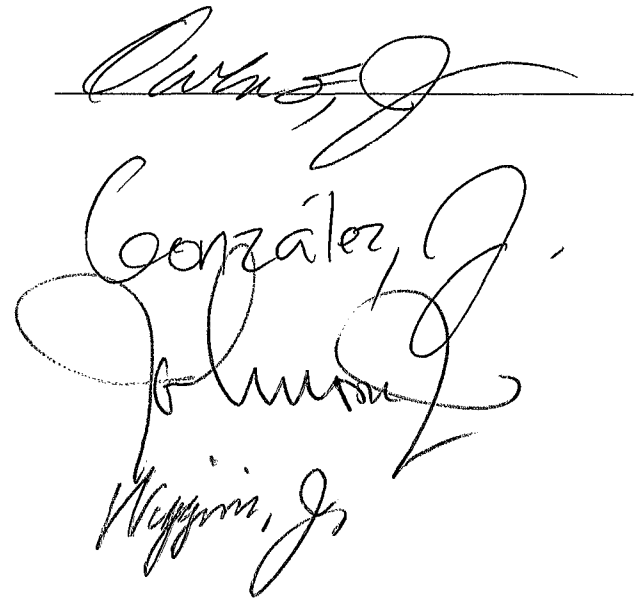 Owens, J.
González, J.
Johnson, J.
Wiggins, J.